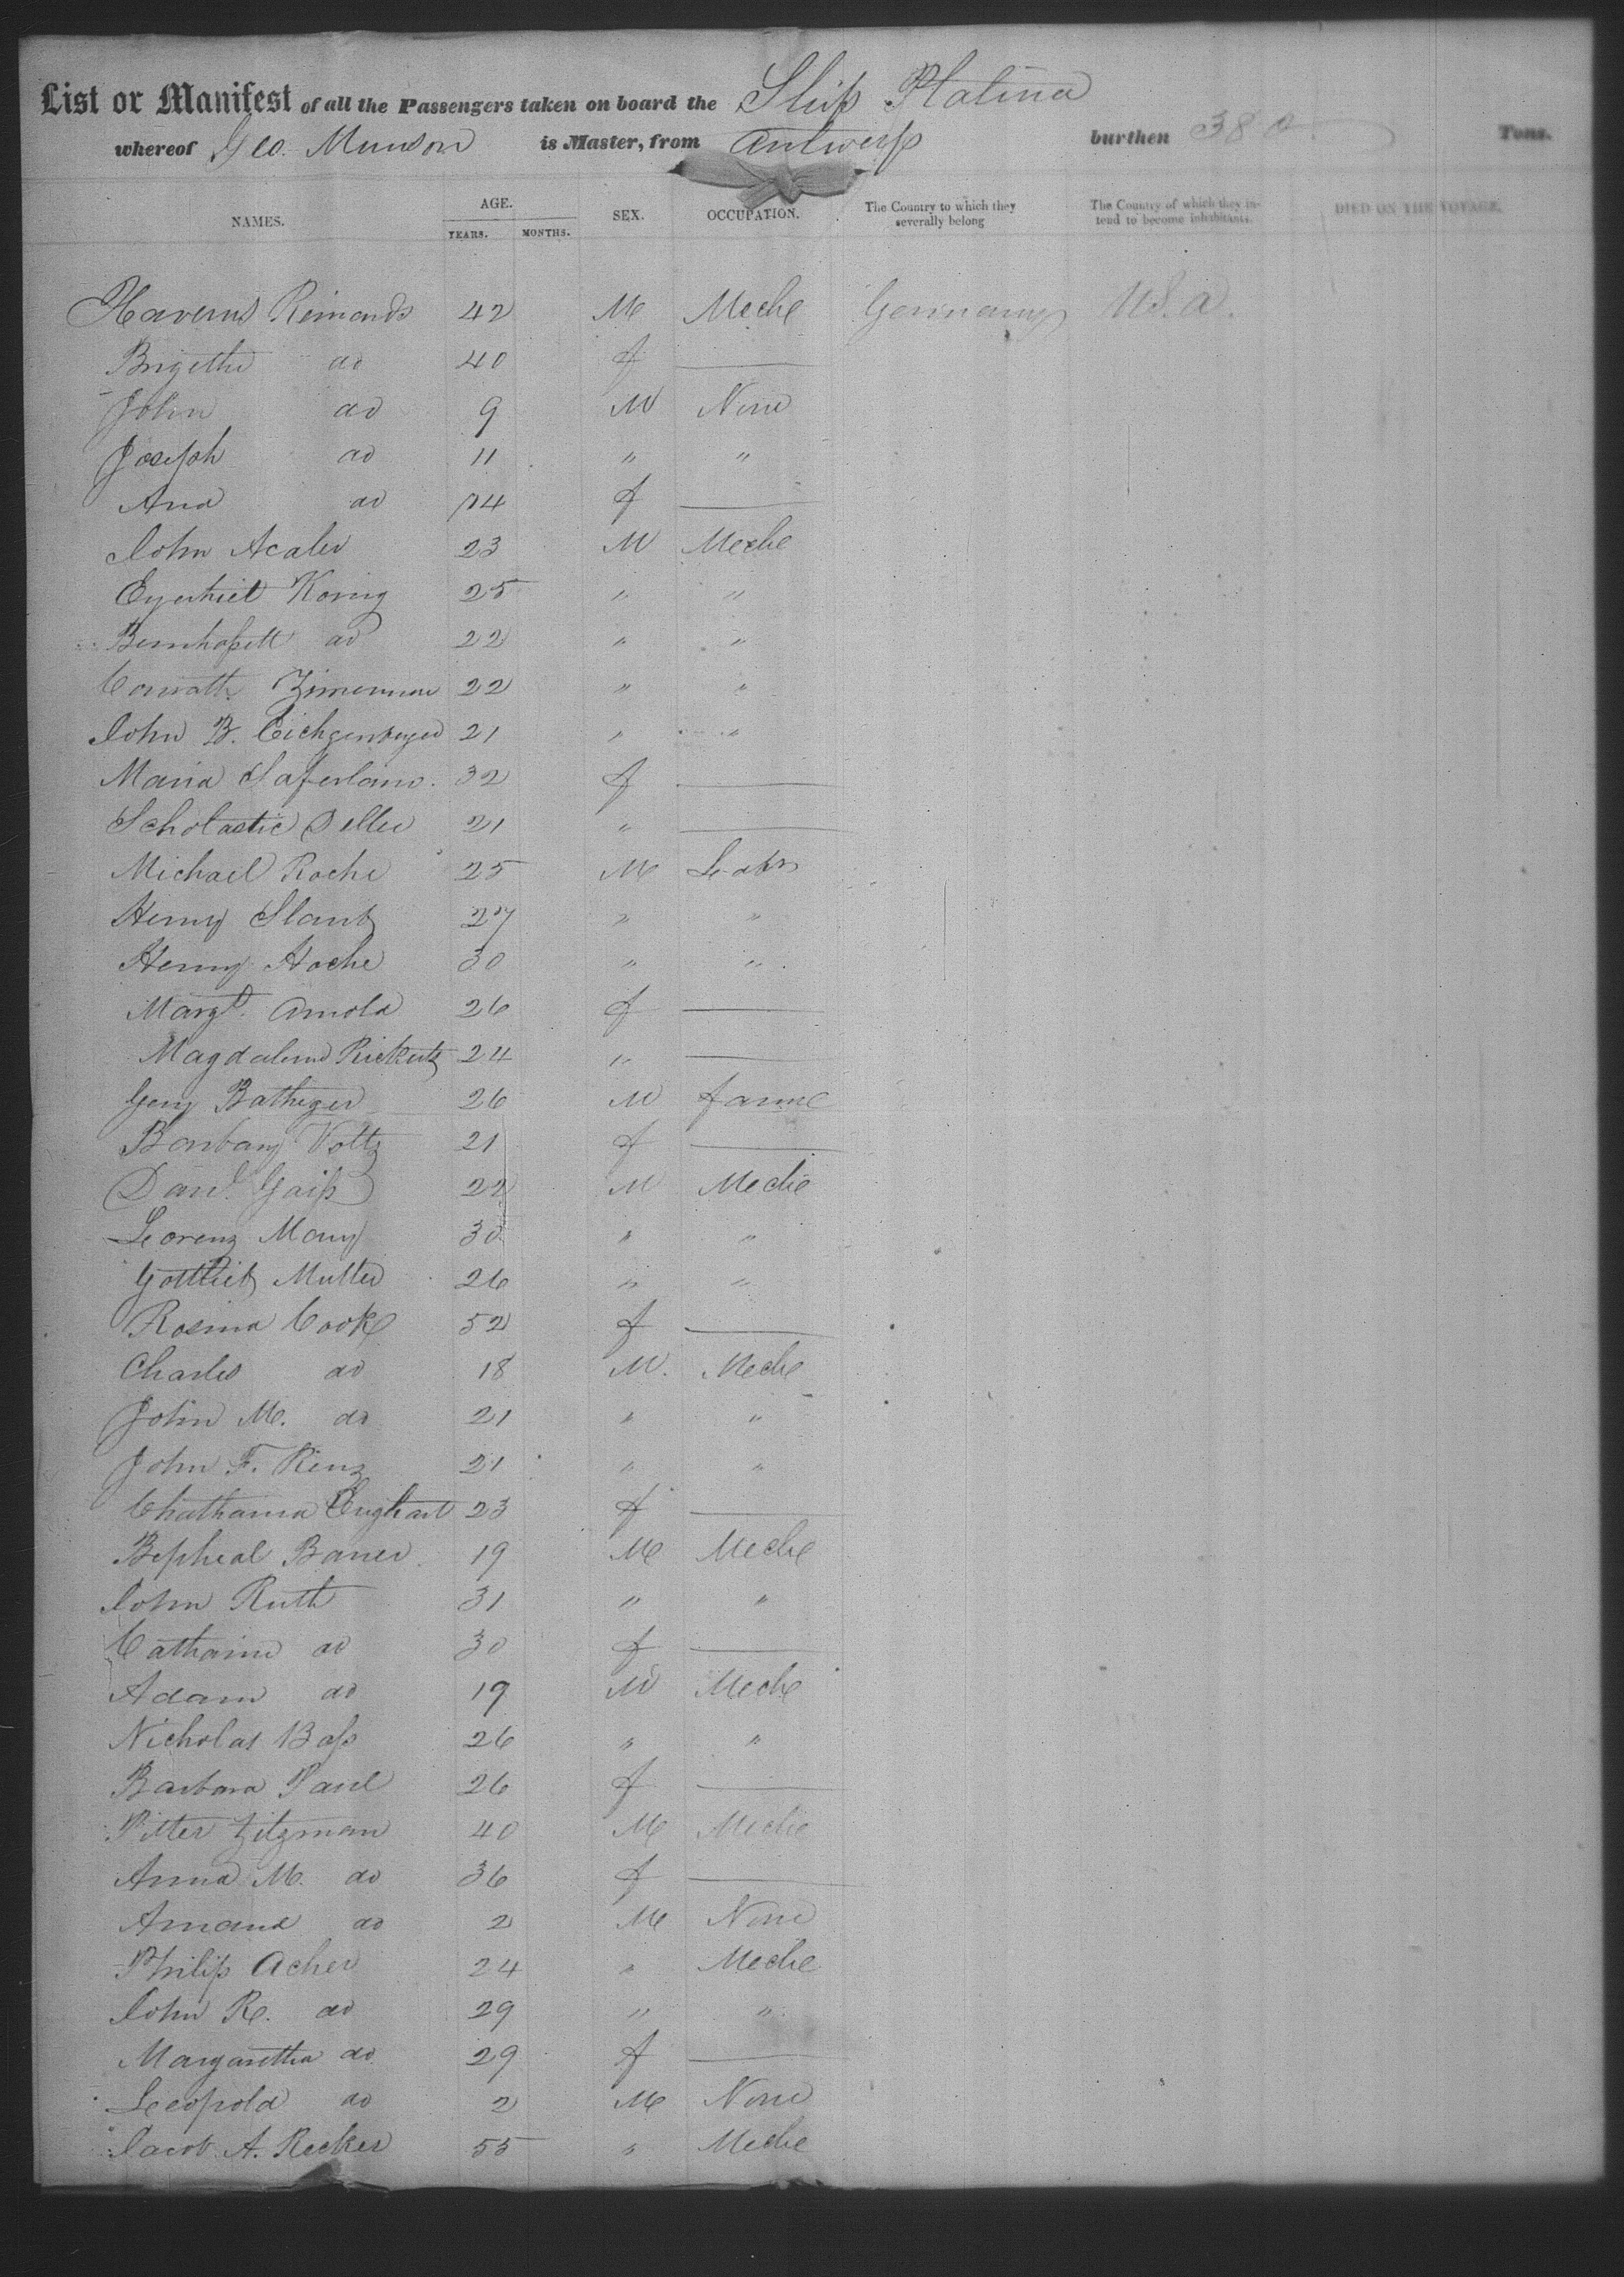 List or Manifest of all the Passengers taken on board the Ship Platina
whereof Geo. Munson is Master, from Antwerp burthen 380 Tons.
NAMES. AGE. YEARS. MONTHS. SEX. OCCUPATION. The Country to which they severally belong The Country of which they intend to become inhabitants. DIED ON THE VOYAGE.
Haverns Rimonds 42 M Meche Germany U.S.A.
Brigethe do 40 f
John do 9 M None
Joseph do 11 " "
Ana do 14 f
John Acaler 23 M Meche
Konig 25 " "
do 22 " "
Zimerman 22 " "
John B. Eichgenberger 21 " "
Maria 32 f
Scholastic Deller 21 "
Michael Roche 25 M Labr
Henry Slantz 27 " "
Henry Hoche 30 " "
Margt. Arnold 26 f
Magdalena Ricketz 24 "
Geny Batheger 26 M farme
Barbary Voltz 21 f
Danl. Gaiss 22 M Meche
Lorenz Many 30 " "
Gottlieb Muller 26 " "
Rosina Cook 52 f
Charles do 18 M. Meche
John M. do 21 " "
John F. Renz 21 " "
Chatharina Englhart 23 f
Bepheal Baner 19 M Meche
John Ruth 31 " "
Catharine do 30 f
Adam do 19 M Meche
Nicholas Bass 26 " "
Barbara Paul 26 f
Pitter Zitzman 40 M Meche
Anna M. do 36 f
Amand do 2 M None
Philip Acher 24 " Meche
John R. do 29 " "
Margaretha do 29 f
Leopold do 2 M None
Jacob A. Recker 55 " Meche